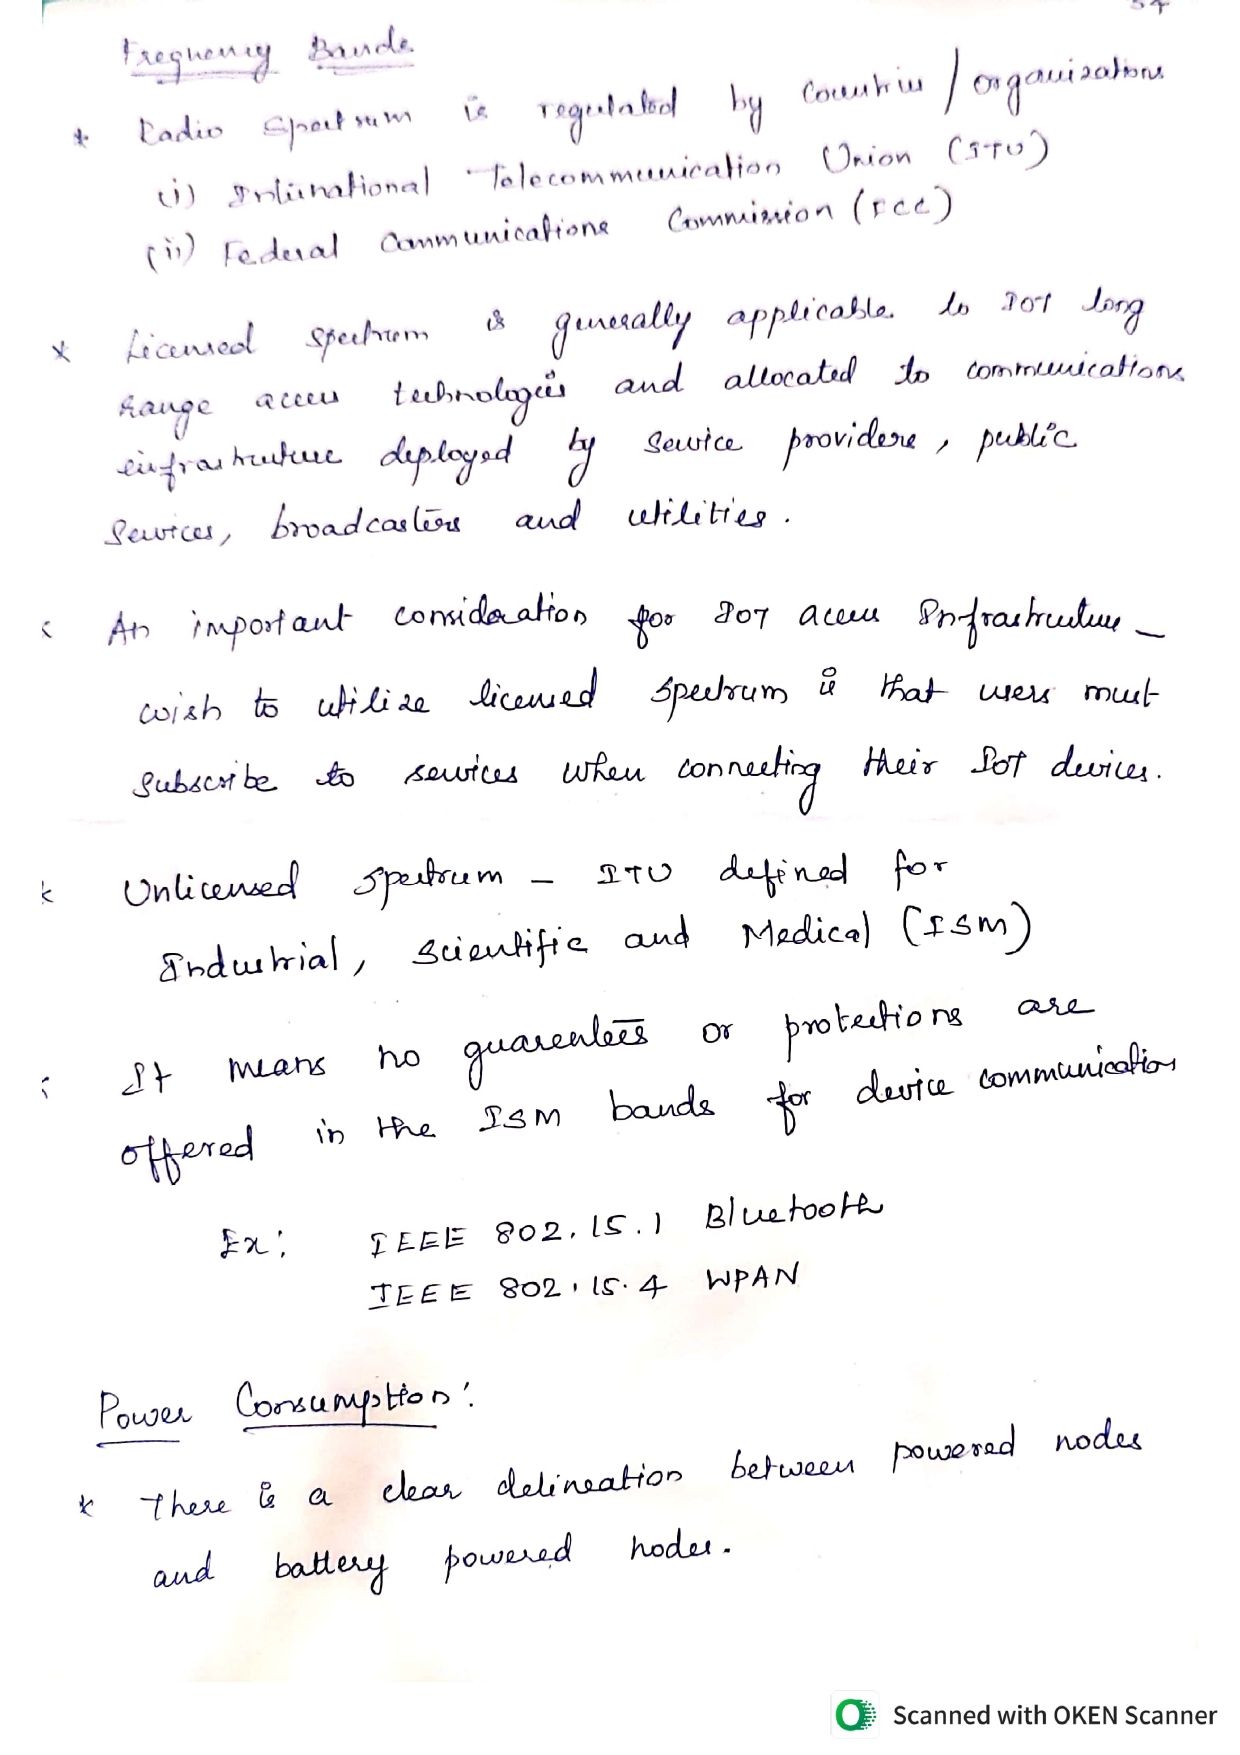 Frequency Bands
* Radio Spectrum is regulated by Countries / organizations
(i) International Telecommunication Union (ITU)
(ii) Federal Communications Commission (FCC)
* Licensed spectrum is generally applicable to IOT long
range access technologies and allocated to communications
infrastructure deployed by service providers, public
services, broadcasters and utilities.
* An important consideration for IOT access Infrastructure –
wish to utilize licensed spectrum is that users must
subscribe to services when connecting their IoT devices.
* Unlicensed spectrum – ITU defined for
Industrial, Scientific and Medical (ISM)
* It means no guarentees or protections are
offered in the ISM bands for device communication
Ex: IEEE 802.15.1 Bluetooth
IEEE 802.15.4 WPAN
Power Consumption:
* There is a clear delineation between powered nodes
and battery powered nodes.
Scanned with OKEN Scanner